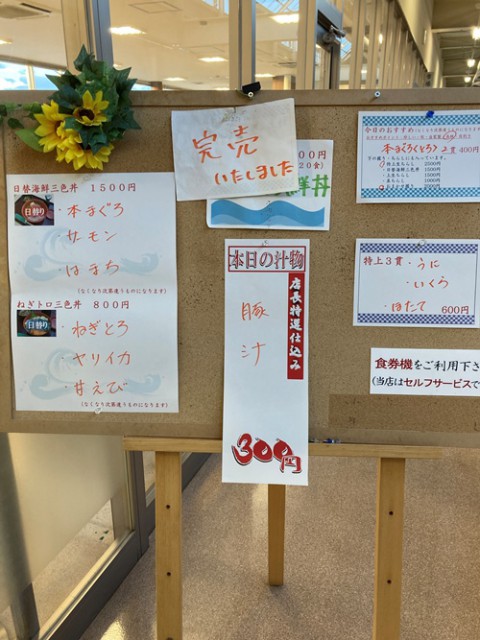 日替海鮮三色丼 1500円
日替り
・本まぐろ
・サーモン
・はまち
(なくなり次第違うものになります)
ねぎトロ三色丼 800円
日替り
・ねぎとろ
・ヤリイカ
・甘えび
(なくなり次第違うものになります)
完売
いたしました
00円
20食)
鮮丼
本日の汁物
店長特選仕込み
豚
汁
300円
今日のおすすめ
本まぐろくとろ? 2貫 400円
特上3貫・うに
・いくら
・ほたて 600円
食券機をご利用下さ
(当店はセルフサービスで